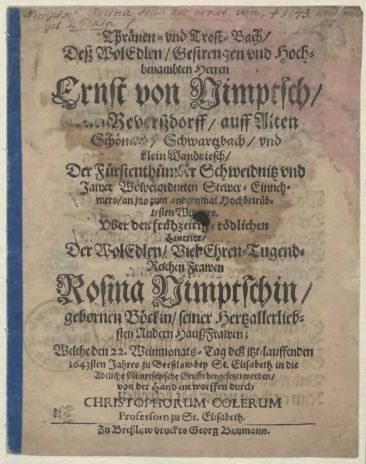 Thränen- vnd Trost-Bach/
Deß WolEdlen/ Gestrengen vnd Hoch-
benambten Herren
Ernst von Nimptsch/
Reverßdorff/ auff Alten
Schönaw/ Schwartzbach/ vnd
klein Wandriesch/
Der Fürstenthümber Schweidnitz vnd
Jawer Wolverordneten Stewer-Einneh-
mers/ an jtzo zum andernmal Hochbetrüb-
testen Witwers.
Vber den frühzeitig-tödlichen
Hintritt/
Der WolEdlen/ Viel-Ehren-Tugend-
Reichen Frawen
Rosina Nimptschin/
gebornen Böckin/ seiner Hertzallerlieb-
sten Andern HaußFrawen;
Welche den 22. Weinmonats-Tag deß itzt-lauffenden
1643sten Jahres zu Breßlaw bey St. Elisabeth in die
Adeliche Nimptschische Grufft beygesetzt worden/
von der Hand entworffen durch
CHRISTOPHORUM COLERUM
Professorn zu St. Elisabeth.
Zu Breßlaw druckts Georg Baumann.